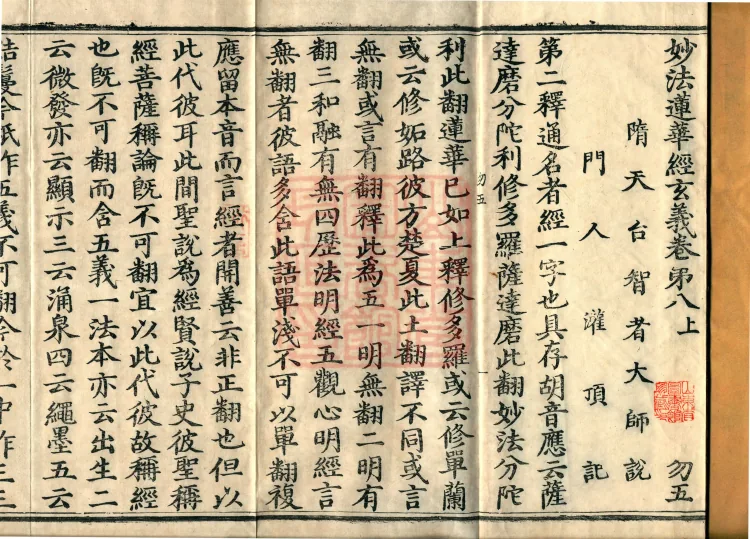 妙法蓮華經玄義卷第八上 勿五
隋天台智者大師說
門人灌頂記
第二釋通名者經一字也具存胡音應云薩
達磨分陀利修多羅薩達磨此翻妙法分陀
勿五 一
利此翻蓮華已如上釋修多羅或云修單蘭
或云修妬路彼方楚夏此土翻譯不同或言
無翻或言有翻釋此為五一明無翻二明有
翻三和融有無四歷法明經五觀心明經言
無翻者彼語多含此語單淺不可以單翻複
應留本音而言經者開善云非正翻也但以
此代彼耳此間聖說為經賢說子史彼聖稱
經菩薩稱論旣不可翻宜以此代彼故稱經
也旣不可翻而含五義一法本亦云出生二
云微發亦云顯示三云涌泉四云繩墨五云
結鬘今秖作五義不可翻今於一中作三三